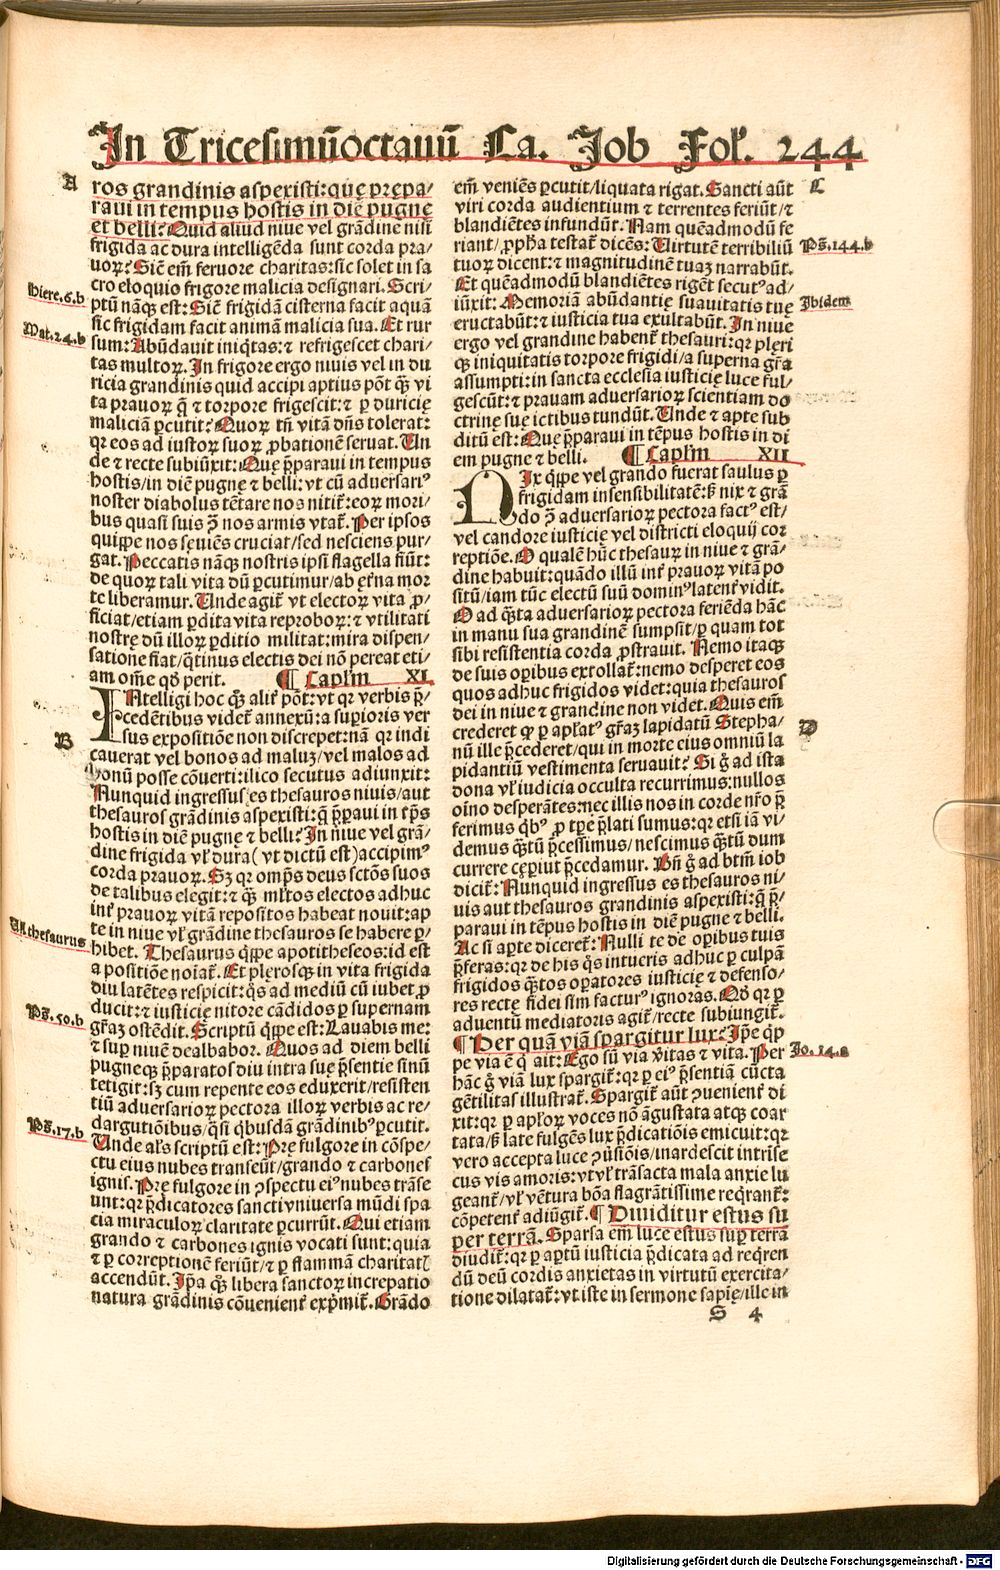 In Tricesimūoctauū Ca. Job Fol. 244
A
ros grandinis aspexisti: quę prępa/
raui in tempus hostis in diē pugnę
et belli? Quid aliud niue vel grādine nisi
frigida ac dura intelligēda sunt corda pra/
uoꝝ? Sicē em̄ feruore charitas: sic solet in sa
cro eloquio frigore malicia designari. Scri/
Hiere.6.b
ptū nāqꝫ est: Sicē frigidā cisterna facit aquā
sic frigidam facit animā malicia sua. Et rur
Mat.24.b
sum: Abūdauit iniq̇tas: ⁊ refrigescet chari/
tas multoꝝ. In frigore ergo niuis vel in du
ricia grandinis quid accipi aptius pōt q̄ꝫ vi
ta prauoꝝ q̄ ⁊ torpore frigescit: ⁊ ꝑ duriciē
maliciā ꝑcutit? Quoꝝ tn̄ vitā dn̄s tolerat:
qꝛ eos ad iustoꝝ suoꝝ ꝓbationē seruat. Un
de ⁊ recte subiūxit: Quę p̄paraui in tempus
hostis/in diē pugnę ⁊ belli: vt cū aduersariꝰ
noster diabolus tētare nos nitit᷑: eoꝝ mori/
bus quasi suis ꝯ̄ nos armis vtat᷑. Per ipsos
quippe nos sęuiēs cruciat/sed nesciens pur/
gat. Peccatis nāqꝫ nostris ipsi flagella fiūt:
de quoꝝ tali vita dū ꝑcutimur/ab ęt̄na mor
te liberamur. Unde agit᷑ vt electoꝝ vita ꝓ/
ficiat/etiam ꝑdita vita reproboꝝ: ⁊ vtilitati
nostrę dū illoꝝ ꝑditio militat: mira dispen/
satione fiat/q̄tinus electis dei nō pereat eti/
am om̄e qd̄ perit. ¶ Caplm̄ XI.
INtelligi hoc q̄ꝫ alit᷑ pōt: vt qꝛ verbis p̄/
cedētibus videt᷑ annexū: a supioris ver
B
sus expositiōe non discrepet: nā qꝛ indi
cauerat vel bonos ad maluꝫ/vel malos ad
bonū posse cōuerti: ilico secutus adiunxit:
Nunquid ingressus es thesauros niuis/aut
thesauros grādinis aspexisti: q̄ p̄paui in tp̄s
hostis in diē pugnę ⁊ belli? In niue vel grā/
dine frigida vl̓ dura (vt dictū est) accipimꝰ
corda prauoꝝ. Sꝫ qꝛ omp̄s deus sctōs suos
de talibus elegit: ⁊ q̄ꝫ ml̓tos electos adhuc
int᷑ prauoꝝ vitā repositos habeat nouit: ap
te in niue vl̓ grādine thesauros se habere ꝑ/
Al.thesaurus
hibet. Thesaurus q̇ppe apotitheseos: id est
a positiōe noīat᷑. Et plerosqꝫ in vita frigida
diu latētes respicit: q̇s ad mediū cū iubet ꝓ
ducit: ⁊ iusticię nitore cādidos ꝑ supernam
Ps̄.50.b
gr̄aꝫ ostēdit. Scriptū q̇ppe est: Lauabis me:
⁊ sup niuē dealbabor. Quos ad diem belli
pugneqꝫ p̄paratos diu intra sue p̄sentie sinū
tetigit: sꝫ cum repente eos eduxerit/resisten
tiū aduersarioꝝ pectora illoꝝ verbis ac re/
Ps̄.17.b
dargutiōibus/q̄si q̇busdā grādinibꝰ ꝑcutit.
Unde al̓s scriptū est: Prę fulgore in cōspe/
ctu eius nubes transeūt/grando ⁊ carbones
ignis. Prę fulgore in ꝯspectu eiꝰ nubes trāse
unt: qꝛ p̄dicatores sancti vniuersa mūdi spa
cia miraculoꝝ claritate ꝑcurrūt. Qui etiam
grando ⁊ carbones ignis vocati sunt: quia
⁊ ꝑ correptionē feriūt/⁊ ꝑ flammā charitatꝭ
accendūt. Ip̄a q̄ꝫ libera sanctoꝝ increpatio
natura grādinis cōuenient᷑ exp̄mit᷑. Grādo
C
em̄ veniēs ꝑcutit/liquata rigat. Sancti aūt
viri corda audientium ⁊ terrentes feriūt/⁊
blandiētes infundūt. Nam quēadmodū fe
Ps̄.144.b
riant/ꝓph̄a testat᷑ dicēs: Uirtutē terribiliū
tuoꝝ dicent: ⁊ magnitudinē tuaꝫ narrabūt.
Et quēadmodū blandiētes rigēt secutꝰ ad/
Ibidem
iūxit: Memoriā abūdantię suauitatis tuę
eructabūt: ⁊ iusticia tua exultabūt. In niue
ergo vel grandine habent᷑ thesauri: qꝛ pleri
qꝫ iniquitatis torpore frigidi/a superna gr̄a
assumpti: in sancta ecclesia iusticię luce ful/
gescūt: ⁊ prauam aduersarioꝝ scientiam do
ctrinę sue ictibus tundūt. Unde ⁊ apte sub
ditū est: Que p̄paraui in tēpus hostis in di
em pugne ⁊ belli. ¶ Caplm̄ XII
NIx q̇ppe vel grando fuerat saulus ꝑ
frigidam insensibilitatē: sꝫ nix ⁊ grā
do ꝯ̄ aduersarioꝝ pectora factꝰ est/
vel candore iusticię vel districti eloquij cor
reptiōe. O qualē hūc thesauꝝ in niue ⁊ grā/
dine habuit: quādo illū int᷑ prauoꝝ vitā po
sitū/iam tūc electū suū dominꝰ latent᷑ vidit.
O ad q̄sta aduersarioꝝ pectora feriēda hāc
in manu sua grandinē sumpsit/ꝑ quam tot
sibi resistentia corda ꝓstrauit. Nemo itaqꝫ
de suis opibus extollat᷑: nemo desperet eos
quos adhuc frigidos videt: quia thesauros
dei in niue ⁊ grandine non videt. Quis em̄
D
crederet ꝙ ꝑ apl̓atꝰ gr̄aꝫ lapidatū Stepha/
nū ille p̄cederet/qui in morte eius omniū la
pidantiū vestimenta seruauit? Si ḡ ad ista
dona vl̓ iudicia occulta recurrimus: nullos
oīno desperātes: nec illis nos in corde nr̄o p̄
ferimus q̇bꝰ ꝓ tp̄e p̄lati sumus: qꝛ etsi iā vi/
demus q̄tū p̄cessimus/nescimus q̄tū dum
currere cęꝑint p̄cedamur. Bn̄ ḡ ad btm̄ iob
dicit᷑: Nunquid ingressus es thesauros ni/
uis aut thesauros grandinis aspexisti: q̄ p̄/
paraui in tēpus hostis in diē pugne ⁊ belli.
Ac si aꝑte diceret᷑: Nulli te de opibus tuis
p̄feras: qꝛ de his q̇s intueris adhuc ꝑ culpā
frigidos q̄tos opatores iusticię ⁊ defenso/
res recte fidei sim facturꝰ ignoras. Qd̄ qꝛ ꝑ
aduentū mediatoris agit᷑/recte subiungit᷑.
¶ Per quā viā spargitur lux? Ip̄e q̇p
Jo.14.a
pe via ē q̇ ait: Ego sū via v̄itas ⁊ vita. Per
hāc ḡ viā lux spargit᷑: qꝛ ꝑ eiꝰ p̄sentiā cūcta
gētilitas illustrat᷑. Spargit᷑ aūt ꝯuenient᷑ di
xit: qꝛ ꝑ apl̓oꝝ voces nō āgustata atqꝫ coar
tata/sꝫ late fulgēs lux p̄dicatiōis emicuit: qꝛ
vero accepta luce ꝯuersiōis/inardescit intrīse
cus vis amoris: vt vl̓ trāsacta mala anxie lu
geant᷑/vl̓ vētura bōa flagrātissime reqrant᷑:
cōpetent᷑ adiūgit᷑. ¶ Diuiditur estus su
per terrā. Sparsa em̄ luce estus sup terrā
diuidit᷑: qꝛ ꝑ aꝑtū iusticia p̄dicata ad reqrēn
dū deū cordis anxietas in virtutū exercita/
tione dilatat᷑: vt iste in sermone sapię/ille in
S 4
Digitalisierung gefördert durch die Deutsche Forschungsgemeinschaft - DFG